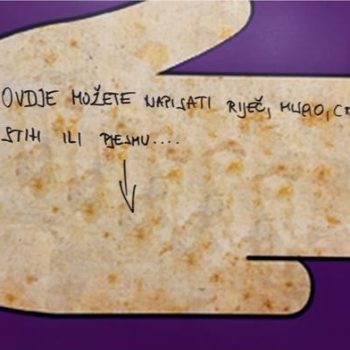 OVDJE MOŽETE NAPISATI RIJEČ,
STIH ILI PJESMU....